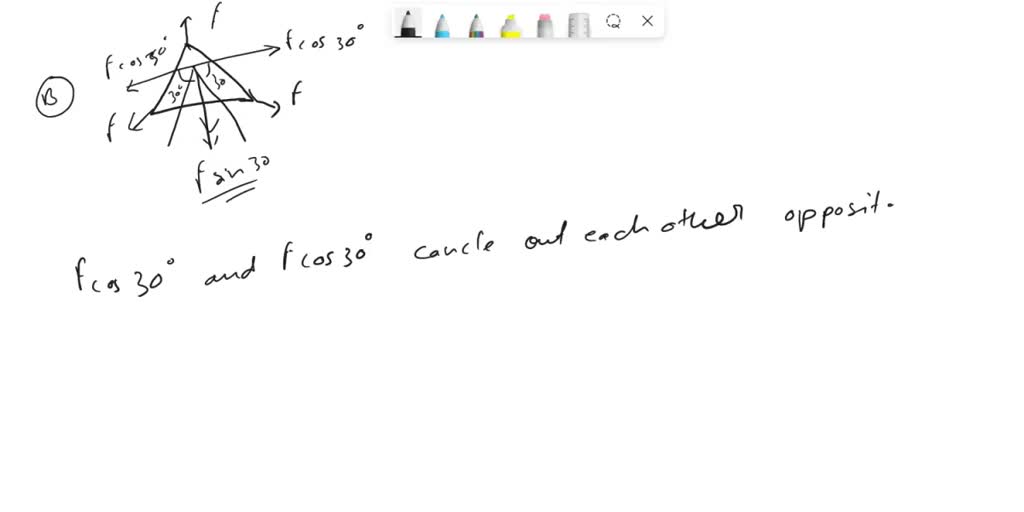 f
f cos 30°
f cos 30°
B
30°
30
f
f
f sin 30
f cos 30° and f cos 30° cancle out each other opposit.